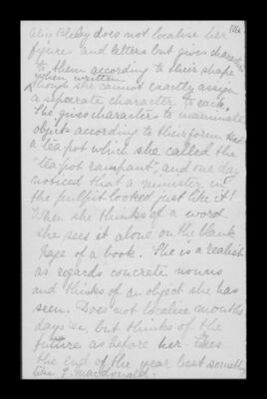 Miss Bleby does not localise her
figures and letters but gives character
to them according to their shape
when written
though she cannot exactly assign
a separate character to each.
She gives character to inanimate
objects according to their form. Had
a teapot which she called the
"teapot rampant", and one day
noticed that a minister in
the pulpit looked just like it!
When she thinks of a word
she sees it alone on the blank
page of a book. She is a realist
as regards concrete nouns
and thinks of an object she has
seen. Does not localise months
days &c, but thinks of the
future as before her. Sees
the end of the year best
Macdonald.